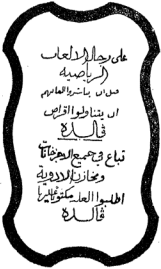 على رجال الالعاب
الرياضية
قبل ان يباشروا العابهم
ان يتناولوا اقراص
ڤالده
تباع في جميع الاجزخانات
ومخازن الادوية
اطلبوا العلبة مكتوبا عليها
ڤالده